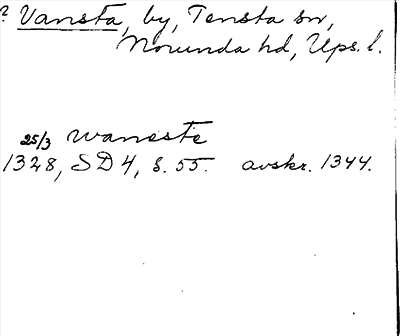 ? Vansta, by, Tensta sn,
Norunda hd, Ups. l.
25/3 wanestæ
1328, SD 4, s. 55. avskr. 1344.